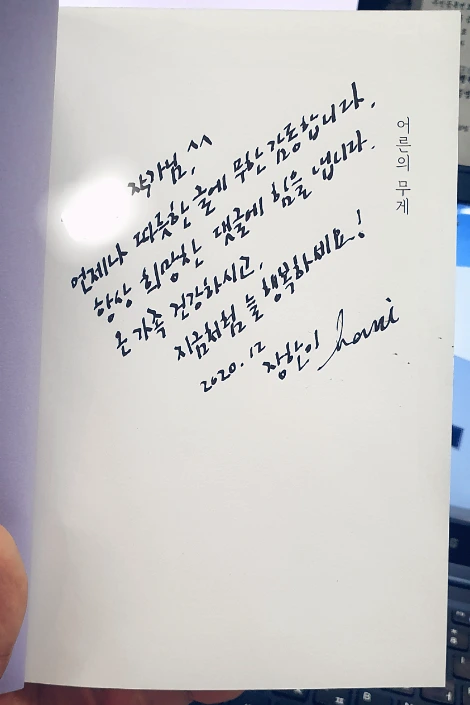 어른의 무게
작가님, ^^
언제나 따뜻한 글에 무한 감동합니다.
항상 희망찬 댓글에 힘을 냅니다.
온 가족 건강하시고,
지금처럼 늘 행복하세요!
2020. 12 장한이 hani